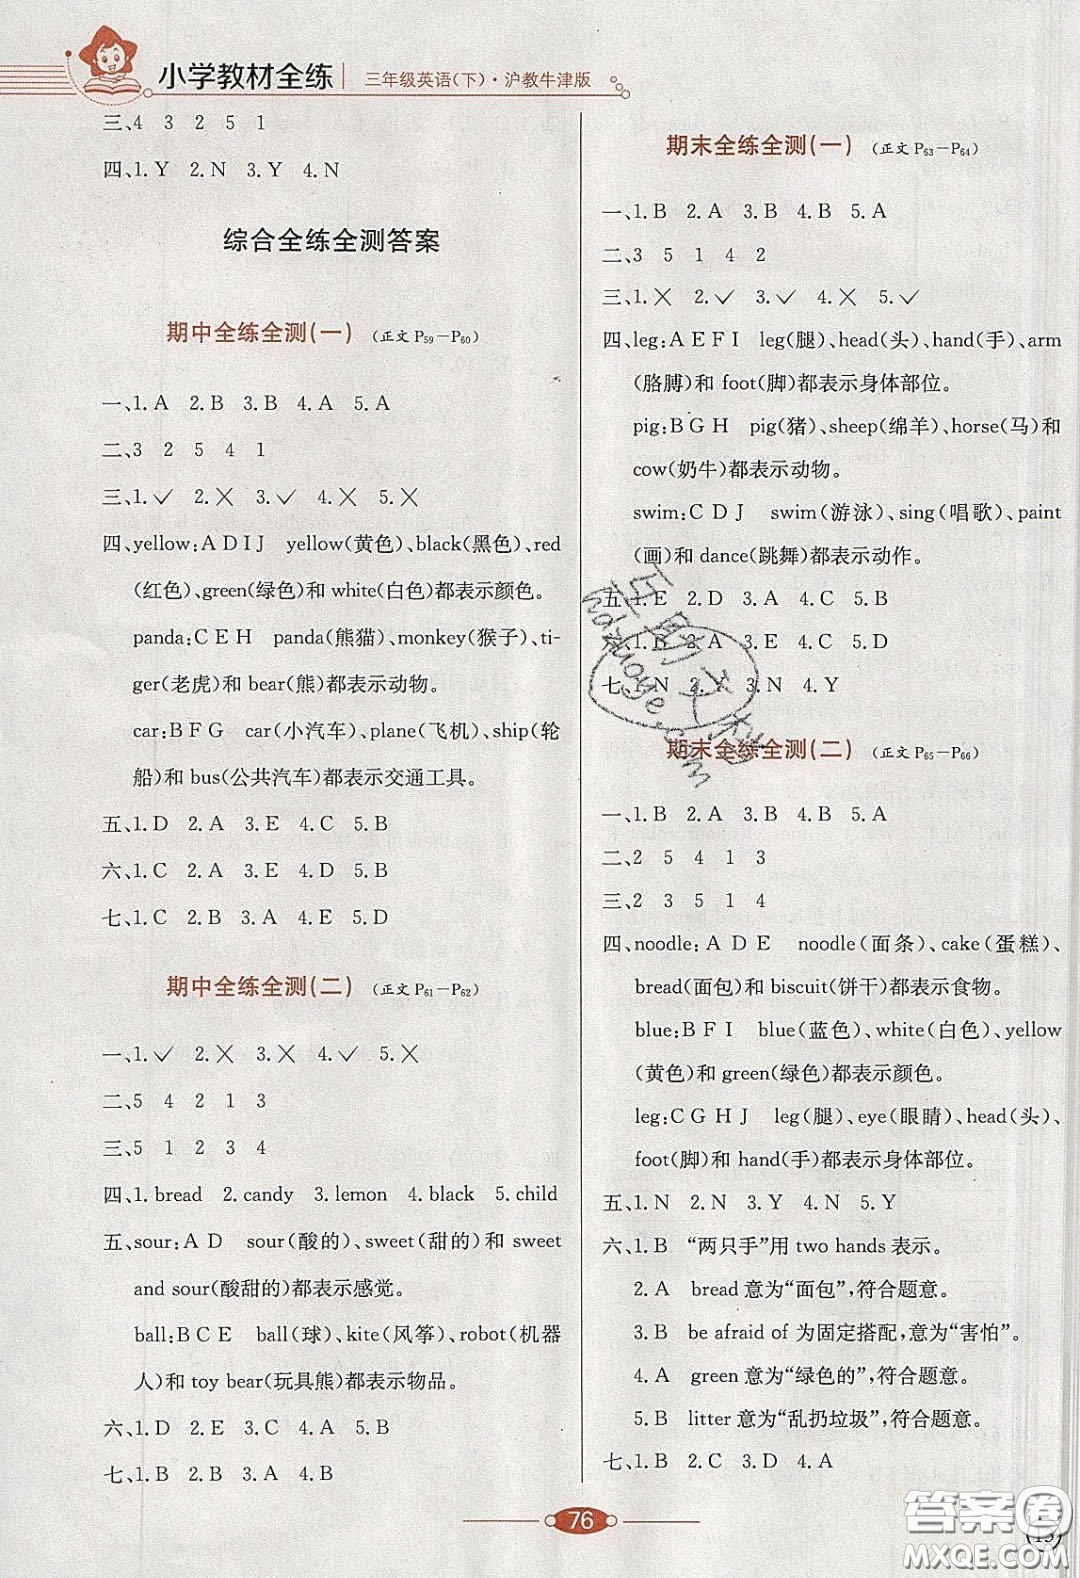 小学教材全练 三年级英语(下)·沪教牛津版
三、4 3 2 5 1
四、1.Y 2.N 3.Y 4.N
综合全练全测答案
期中全练全测(一) (正文P59-P60)
一、1.A 2.B 3.B 4.A 5.A
二、3 2 5 4 1
三、1.✓ 2.✗ 3.✓ 4.✗ 5.✗
四、yellow:A D I J yellow(黄色)、black(黑色)、red
(红色)、green(绿色)和 white(白色)都表示颜色。
panda:C E H panda(熊猫)、monkey(猴子)、ti-
ger(老虎)和 bear(熊)都表示动物。
car:B F G car(小汽车)、plane(飞机)、ship(轮
船)和 bus(公共汽车)都表示交通工具。
五、1.D 2.A 3.E 4.C 5.B
六、1.C 2.A 3.E 4.D 5.B
七、1.C 2.B 3.A 4.E 5.D
期中全练全测(二) (正文P61-P62)
一、1.✓ 2.✗ 3.✗ 4.✓ 5.✗
二、5 4 2 1 3
三、5 1 2 3 4
四、1. bread 2. candy 3. lemon 4. black 5. child
五、sour:A D sour(酸的)、sweet(甜的)和 sweet
and sour(酸甜的)都表示感觉。
ball:B C E ball(球)、kite(风筝)、robot(机器
人)和 toy bear(玩具熊)都表示物品。
六、1.D 2.E 3.C 4.A 5.B
七、1.B 2.B 3.A 4.B
期末全练全测(一) (正文P63-P64)
一、1.B 2.A 3.B 4.B 5.A
二、3 5 1 4 2
三、1.✗ 2.✓ 3.✓ 4.✗ 5.✓
四、leg:A E F I leg(腿)、head(头)、hand(手)、arm
(胳膊)和 foot(脚)都表示身体部位。
pig:B G H pig(猪)、sheep(绵羊)、horse(马)和
cow(奶牛)都表示动物。
swim:C D J swim(游泳)、sing(唱歌)、paint
(画)和 dance(跳舞)都表示动作。
五、1.E 2.D 3.A 4.C 5.B
六、1.B 2.A 3.E 4.C 5.D
七、1.N 2.Y 3.N 4.Y
期末全练全测(二) (正文P65-P66)
一、1.B 2.A 3.A 4.B 5.A
二、2 5 4 1 3
三、2 3 5 1 4
四、noodle:A D E noodle(面条)、cake(蛋糕)、
bread(面包)和 biscuit(饼干)都表示食物。
blue:B F I blue(蓝色)、white(白色)、yellow
(黄色)和 green(绿色)都表示颜色。
leg:C G H J leg(腿)、eye(眼睛)、head(头)、
foot(脚)和 hand(手)都表示身体部位。
五、1.N 2.N 3.Y 4.N 5.Y
六、1.B “两只手”用 two hands 表示。
2.A bread 意为“面包”,符合题意。
3.B be afraid of 为固定搭配,意为“害怕”。
4.A green 意为“绿色的”,符合题意。
5.B litter 意为“乱扔垃圾”,符合题意。
七、1.B 2.C 3.D 4.A
76
答案圈
MXQE.COM